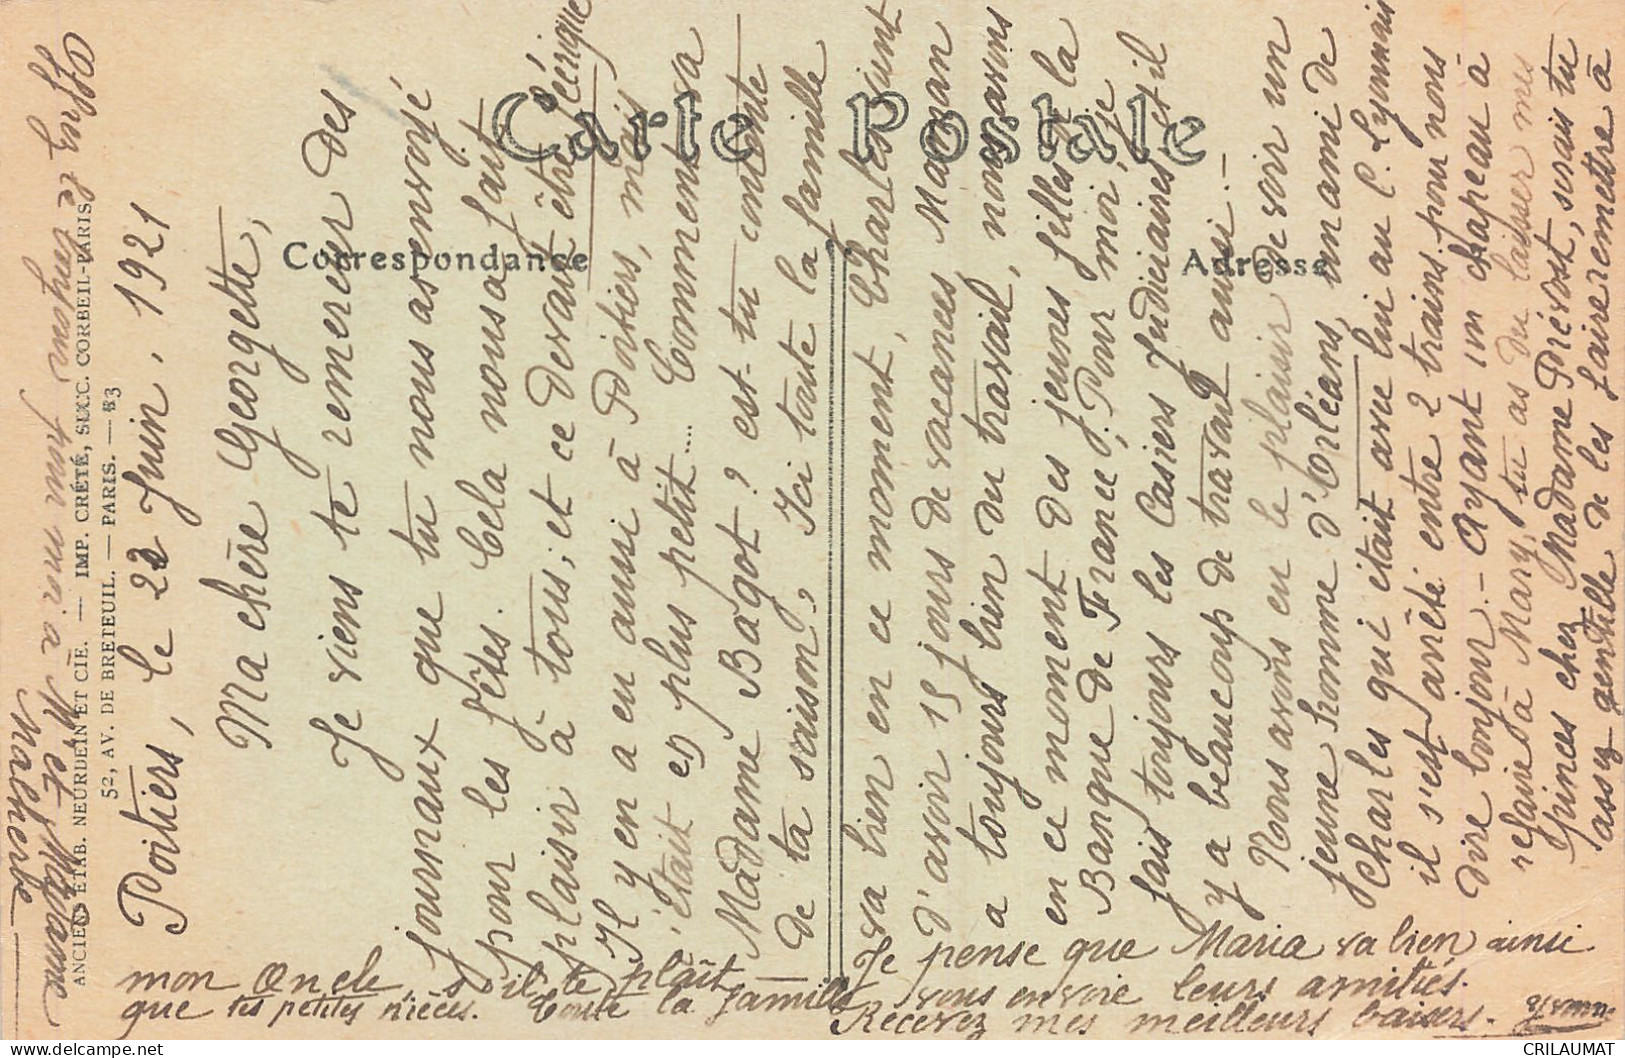 Carte Postale
Correspondance
Adresse
ANCIENS ETAB. NEURDEIN ET CIE. — IMP. CRÉTÉ, SUCC. CORBEIL-PARIS
52, AV. DE BRETEUIL. — PARIS. — 53
Poitiers, le 22 Juin, 1921
Ma chère Georgette,
Je viens te remercier des
journaux que tu nous as envoyé
pour les fêtes. Cela nous a fait
plaisir à tous; et ce devait être féérique
Il y en a eu aussi à Poitiers, mais
c'était en plus petit.... Comment va
Madame Bagot? est-tu contente
de ta saison, Ici toute la famille
va bien en ce moment, Charles vient
d'avoir 15 jours de vacances, Maman
a toujours bien du travail, nous avons
en ce moment des jeunes filles de la
Banque de France; Pour moi, je
fais toujours les Casiers Judiciaires et il
y a beaucoup de travail aussi. -
Nous avons eu le plaisir de voir un
jeune homme d'Orléans, un ami de
Charles qui était avec lui au C. Lyonnais
il s'est arrêté entre 2 trains pour nous
dire bonjour. - Ayant un chapeau à
refaire à Mary, tu as du laisser mes
pinces chez Madame Prévost, serais tu
assez gentille de les faire remettre à
mon Oncle, s'il te plaît —
Je pense que Maria va bien ainsi
que tes petites nièces. Toute la famille
vous envoie leurs amitiés.
Recevez mes meilleurs baisers. Yvonne
pour moi à Mr et Madame
Malherbe
CRILAUMAT